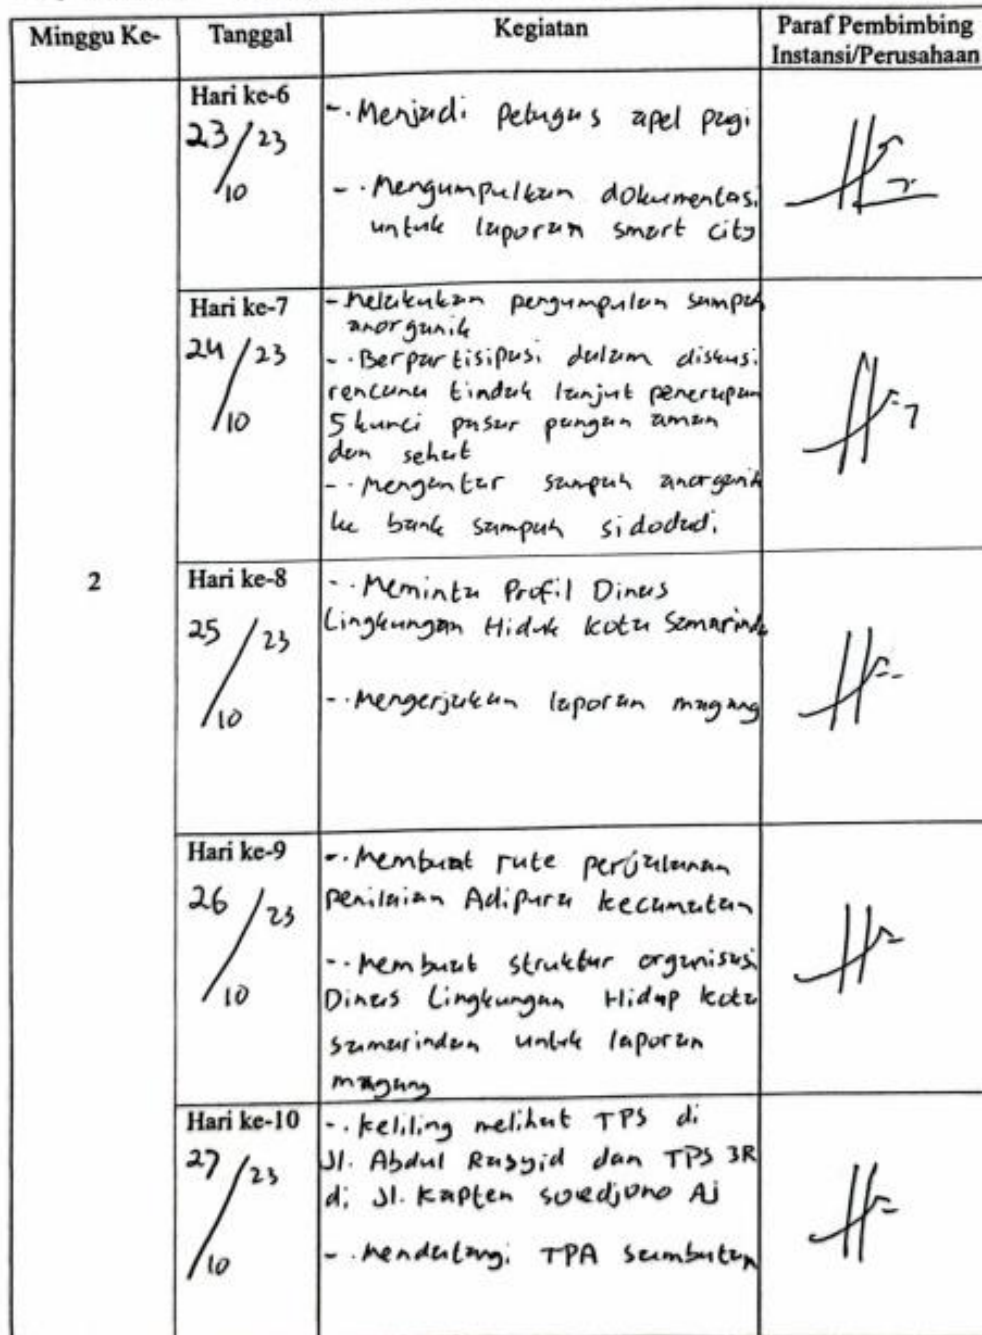 Minggu Ke- Tanggal Kegiatan Paraf Pembimbing
Instansi/Perusahaan
2
Hari ke-6
23/10 23
- Menjadi Petugas apel pagi
- Mengumpulkan dokumentasi
untuk laporan smart city
Hari ke-7
24/10 23
- Melakukan pengumpulan sampah
anorganik
- Berpartisipasi dalam diskusi
rencana tindak lanjut penerapan
5 kunci pasar pangan aman
dan sehat
- Mengantar sampah anorganik
ke bank sampah sidodadi
Hari ke-8
25/10 23
- Meminta Profil Dinas
Lingkungan Hidup Kota Samarinda
- Mengerjakan laporan magang
Hari ke-9
26/10 23
- Membuat rute perjalanan
penilaian Adipura kecamatan
- Membuat struktur organisasi
Dinas Lingkungan Hidup kota
samarindan untuk laporan
magang
Hari ke-10
27/10 23
- keliling melihat TPS di
Jl. Abdul Rasyid dan TPS 3R
di Jl. Kapten soedjono Aj
- Mendatangi TPA sambutan